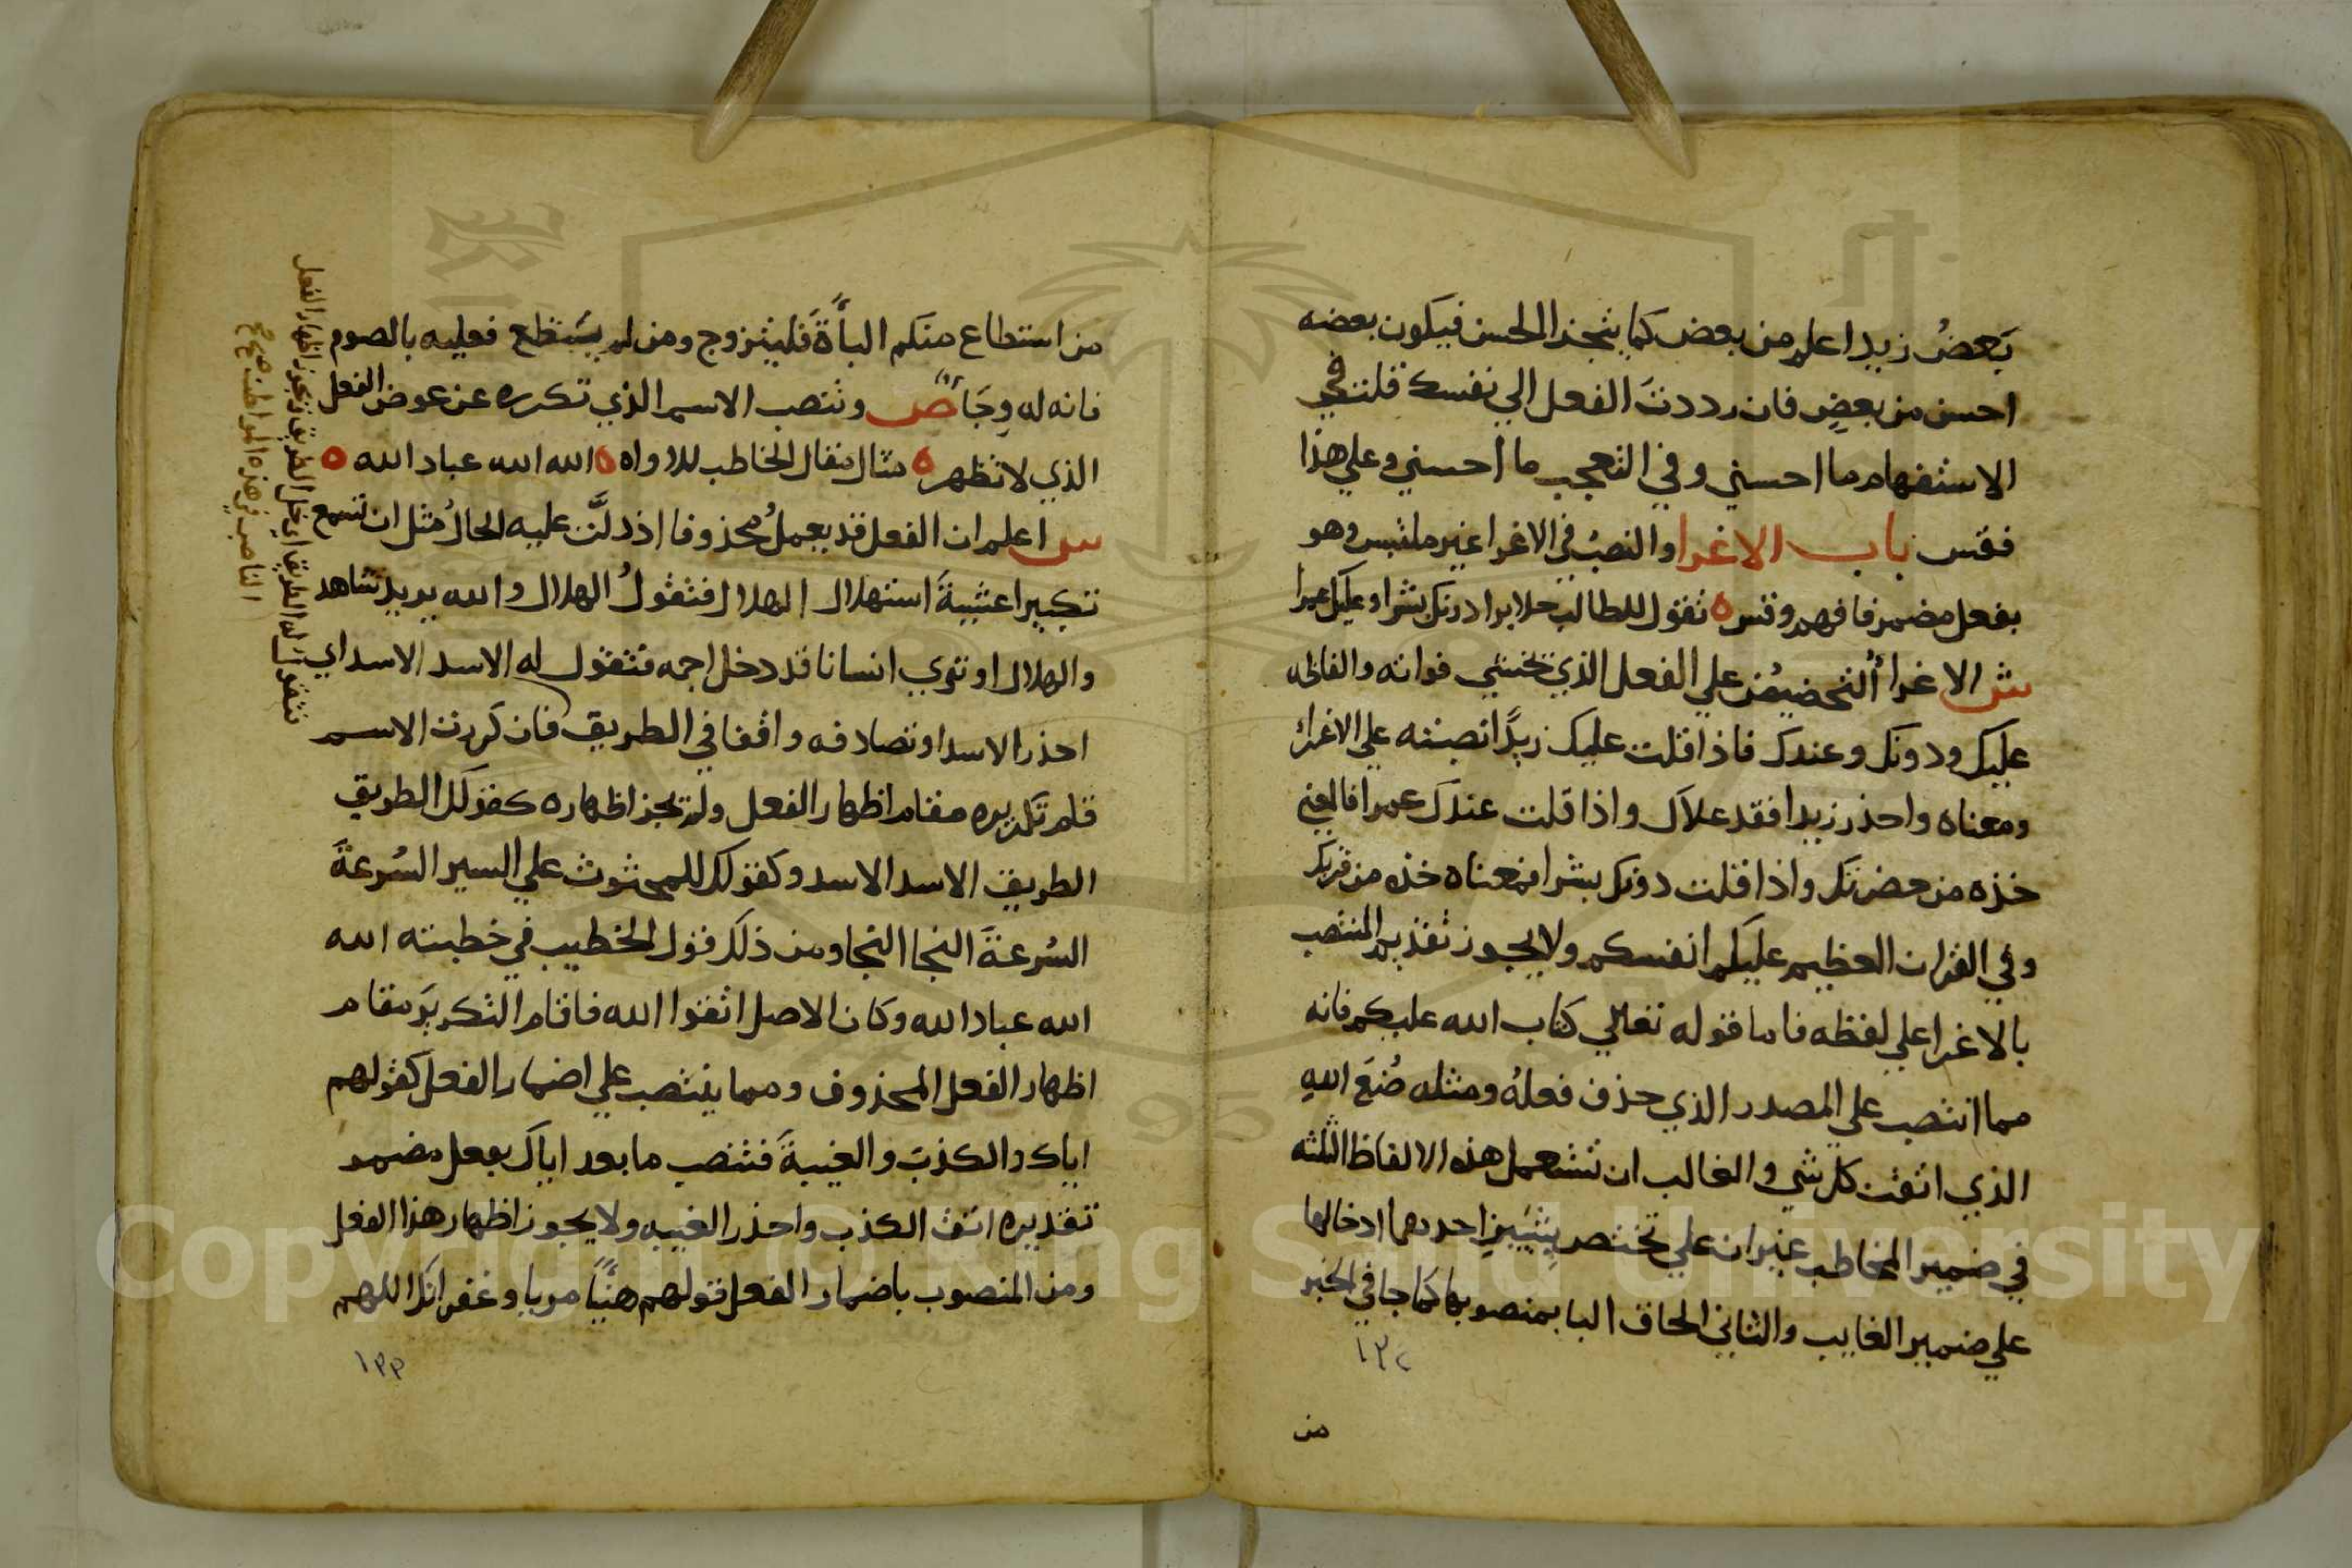 بَعضُ زيد اعلم من بعض كما يتجز الحسن فيكون بعضه
احسن من بعضٍ فان رددتَ الفعل الي نفسك قلت في
الاستفهام ما احسني وفي التعجب ما احسني وعلي هذا
فقس باب الاغرا والنصبُ في الاغرا غير ملتبس وهو
بفعل مضمر فافهم وقس ه تقول للطالب خلا برا دونك بشرا وعليك عمرا
ش الاغرا التحضيض علي الفعل الذي تخشي فواته والفاظه
عليك ودونك وعندك فاذا قلت عليك زيدًا نصبته علي الاغرا
ومعناه واحذر زيدا فقد علاك واذا قلت عندك عمرا فالمعني
خذه من حضرتك واذا قلت دونك بشرا فمعناه خذه من قربك
وفي القران العظيم عليكم انفسكم ولا يجوز تقديم المنتصب
بالاغرا علي لفظه فاما قوله تعالي كتاب الله عليكم فانه
مما انتصب علي المصدر الذي حذف فعلهُ ومثله صُنعَ الله
الذي اتقن كل شي والغالب ان تستعمل هذه الالفاظ الثلثه
في ضمير المخاطب غير ان علي تختص بِشَيئينِ احدهما ادخالها
علي ضمير الغايب والثاني الحاق البا بمنصوبها كما جا في الخبر
١٣٢
من
من استطاع منكم الباًةَ فليتزوج ومن لم يَستطع فعليه بالصوم
فانه له وِجَاً ص وتنصب الاسم الذي تكرره عن عوض الفعل
الذي لا تظهره مثال مقال الخاطب للاواه ه الله الله عباد الله ه
ش اعلم ان الفعل قد يعملُ محذوفا اذ دلَّت عليه الحالُ مثل ان تسمع
تكبيرا عشيةَ استهلال الهلال فتقولُ الهلال والله يريد شاهد
والهلال او تري انسانا قد دخل اجمه فتقول له الاسد الاسد اي
احذر الاسد او تصادفه واقفا في الطريق فان كررت الاسم
قام تكريره مقام اظهار الفعل ولم يجز اظهاره كقولك الطريق
الطريق الاسد الاسد وكقولك للمحثوث علي السير السُرعةَ
السُرعةَ النجا النجا ومن ذلك قول الخطيب في خطبته الله
الله عباد الله وكان الاصل اتقوا الله فاقام التكريرَ مقام
اظهار الفعل المحذوف ومما ينتصب علي اضمار الفعل كقولهم
اياك والكذبَ والغيبةَ فتنصب ما بعد اياك بفعل مضمر
تقديره اتق الكذب واحذر الغيبه ولا يجوز اظهار هذا الفعل
ومن المنصوب باضمار الفعل قولهم هنيًا مريا وغفرانك اللهم
١٣٣
فتقول له الطريق اي خل الطريق ويجوز اظهار الفعل
الناصب في هذه المواطن صح
Copyright © King Saud University